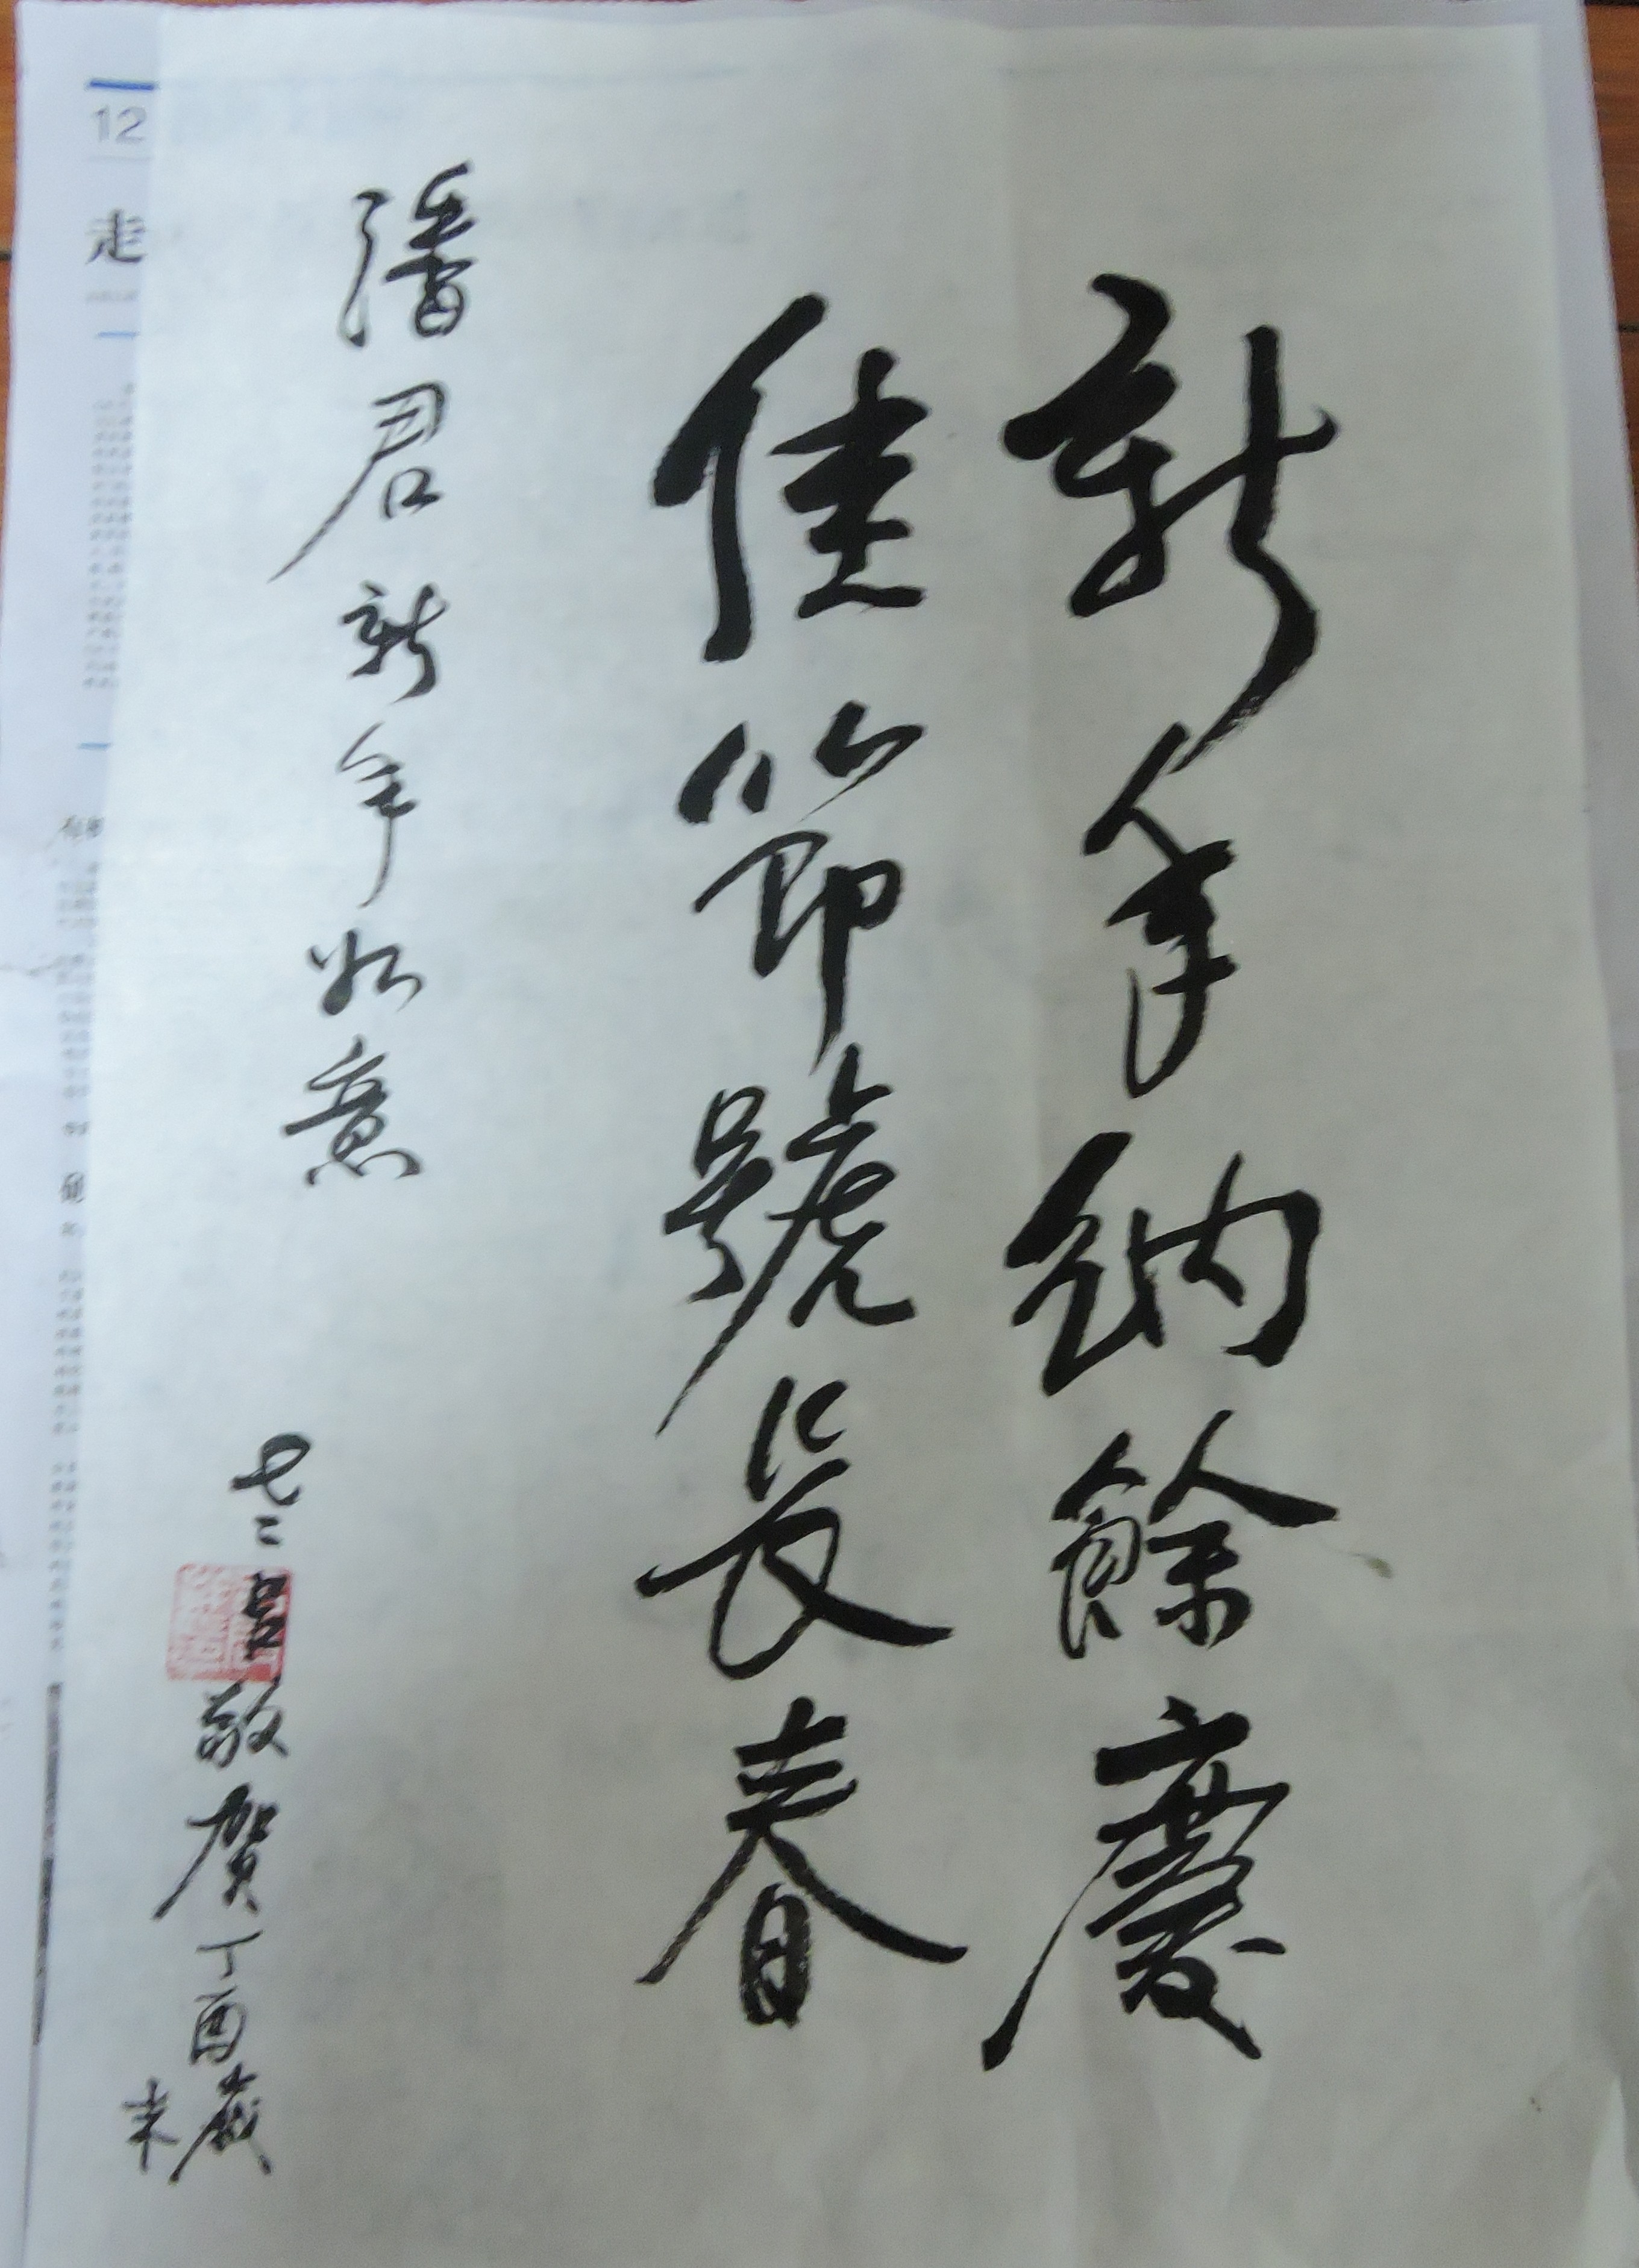 新年納餘慶
佳節號長春
潘君新年如意
敬賀丁酉歲
末
12
走